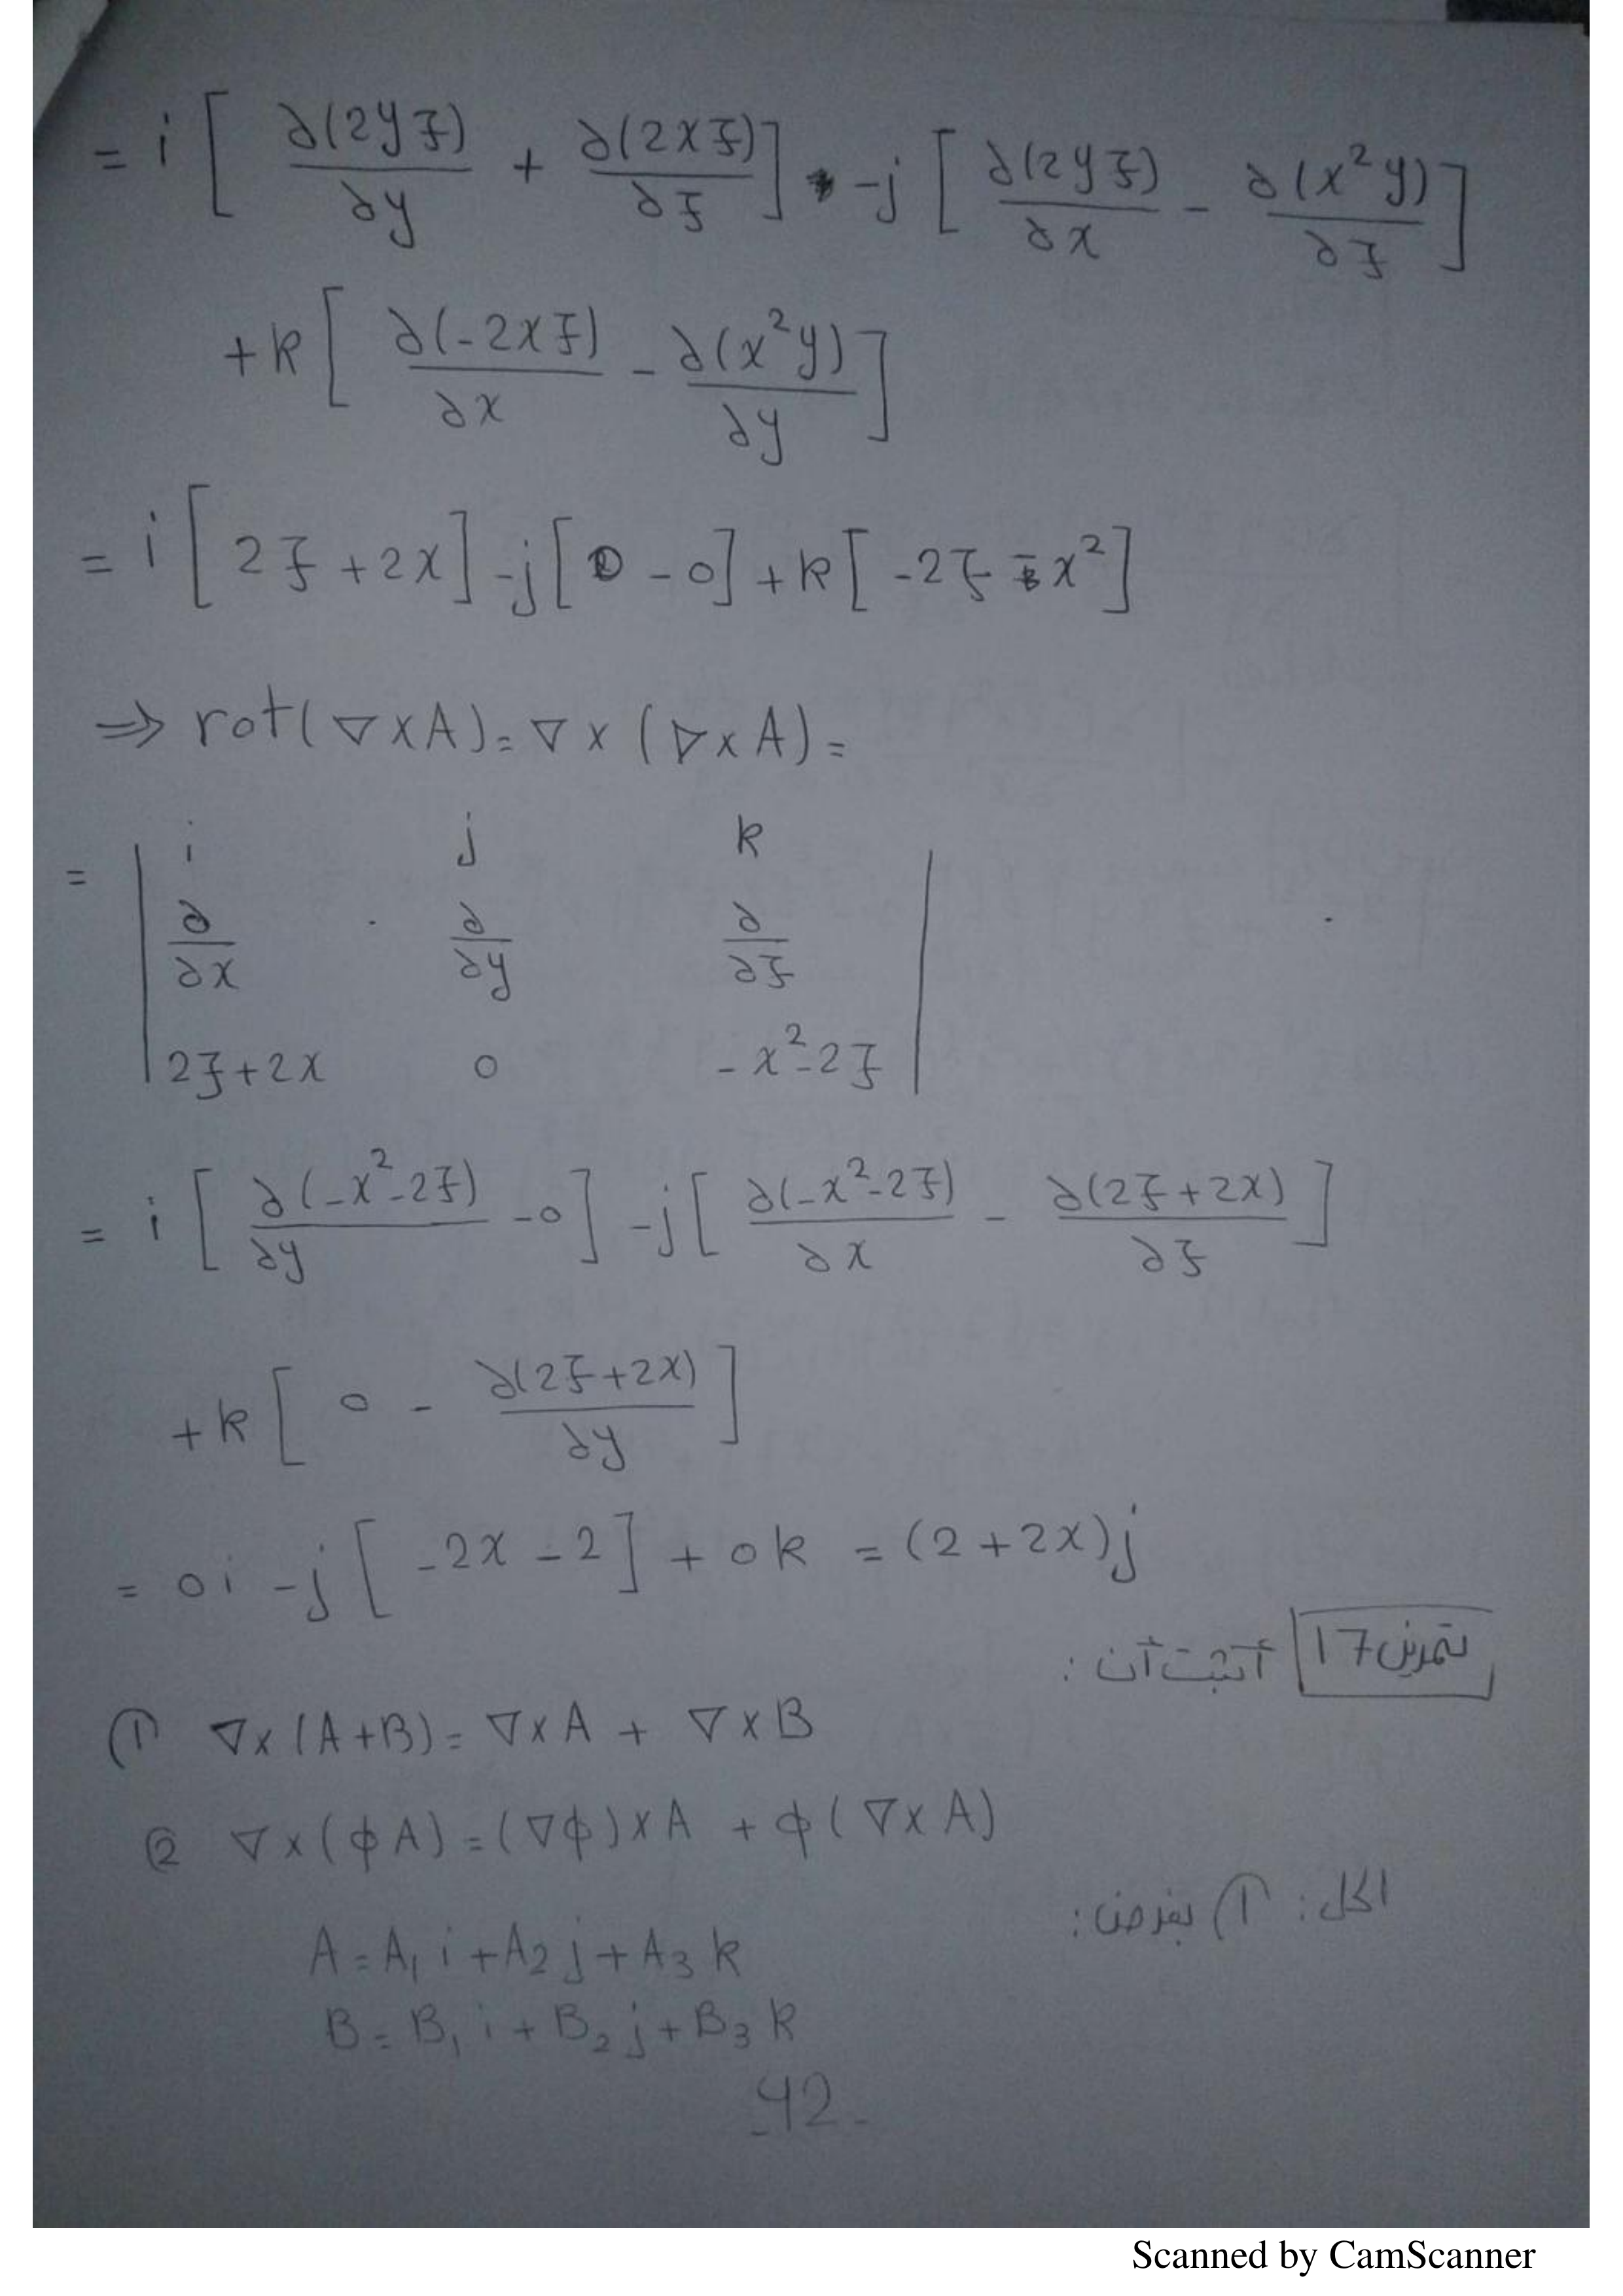 = i [ ∂(2yz)/∂y + ∂(2xz)/∂z ] -j [ ∂(2yz)/∂x - ∂(x²y)/∂z ]
+k [ ∂(-2xz)/∂x - ∂(x²y)/∂y ]
= i [ 2z +2x ] -j [ 0 - 0 ] +k [ -2z - x² ]
⇒ rot(∇xA) = ∇x (∇xA) =
= | i j k |
| ∂/∂x ∂/∂y ∂/∂z |
| 2z+2x 0 -x²-2z |
= i [ ∂(-x²-2z)/∂y -0 ] -j [ ∂(-x²-2z)/∂x - ∂(2z+2x)/∂z ]
+k [ 0 - ∂(2z+2x)/∂y ]
= 0i -j [ -2x -2 ] + 0k = (2+2x)j
تمرين 17 أثبت أن :
① ∇x(A+B) = ∇xA + ∇xB
② ∇x(ϕA) = (∇ϕ)xA + ϕ(∇xA)
الحل : ① بفرض :
A = A₁ i + A₂ j + A₃ k
B = B₁ i + B₂ j + B₃ k
-42-
Scanned by CamScanner